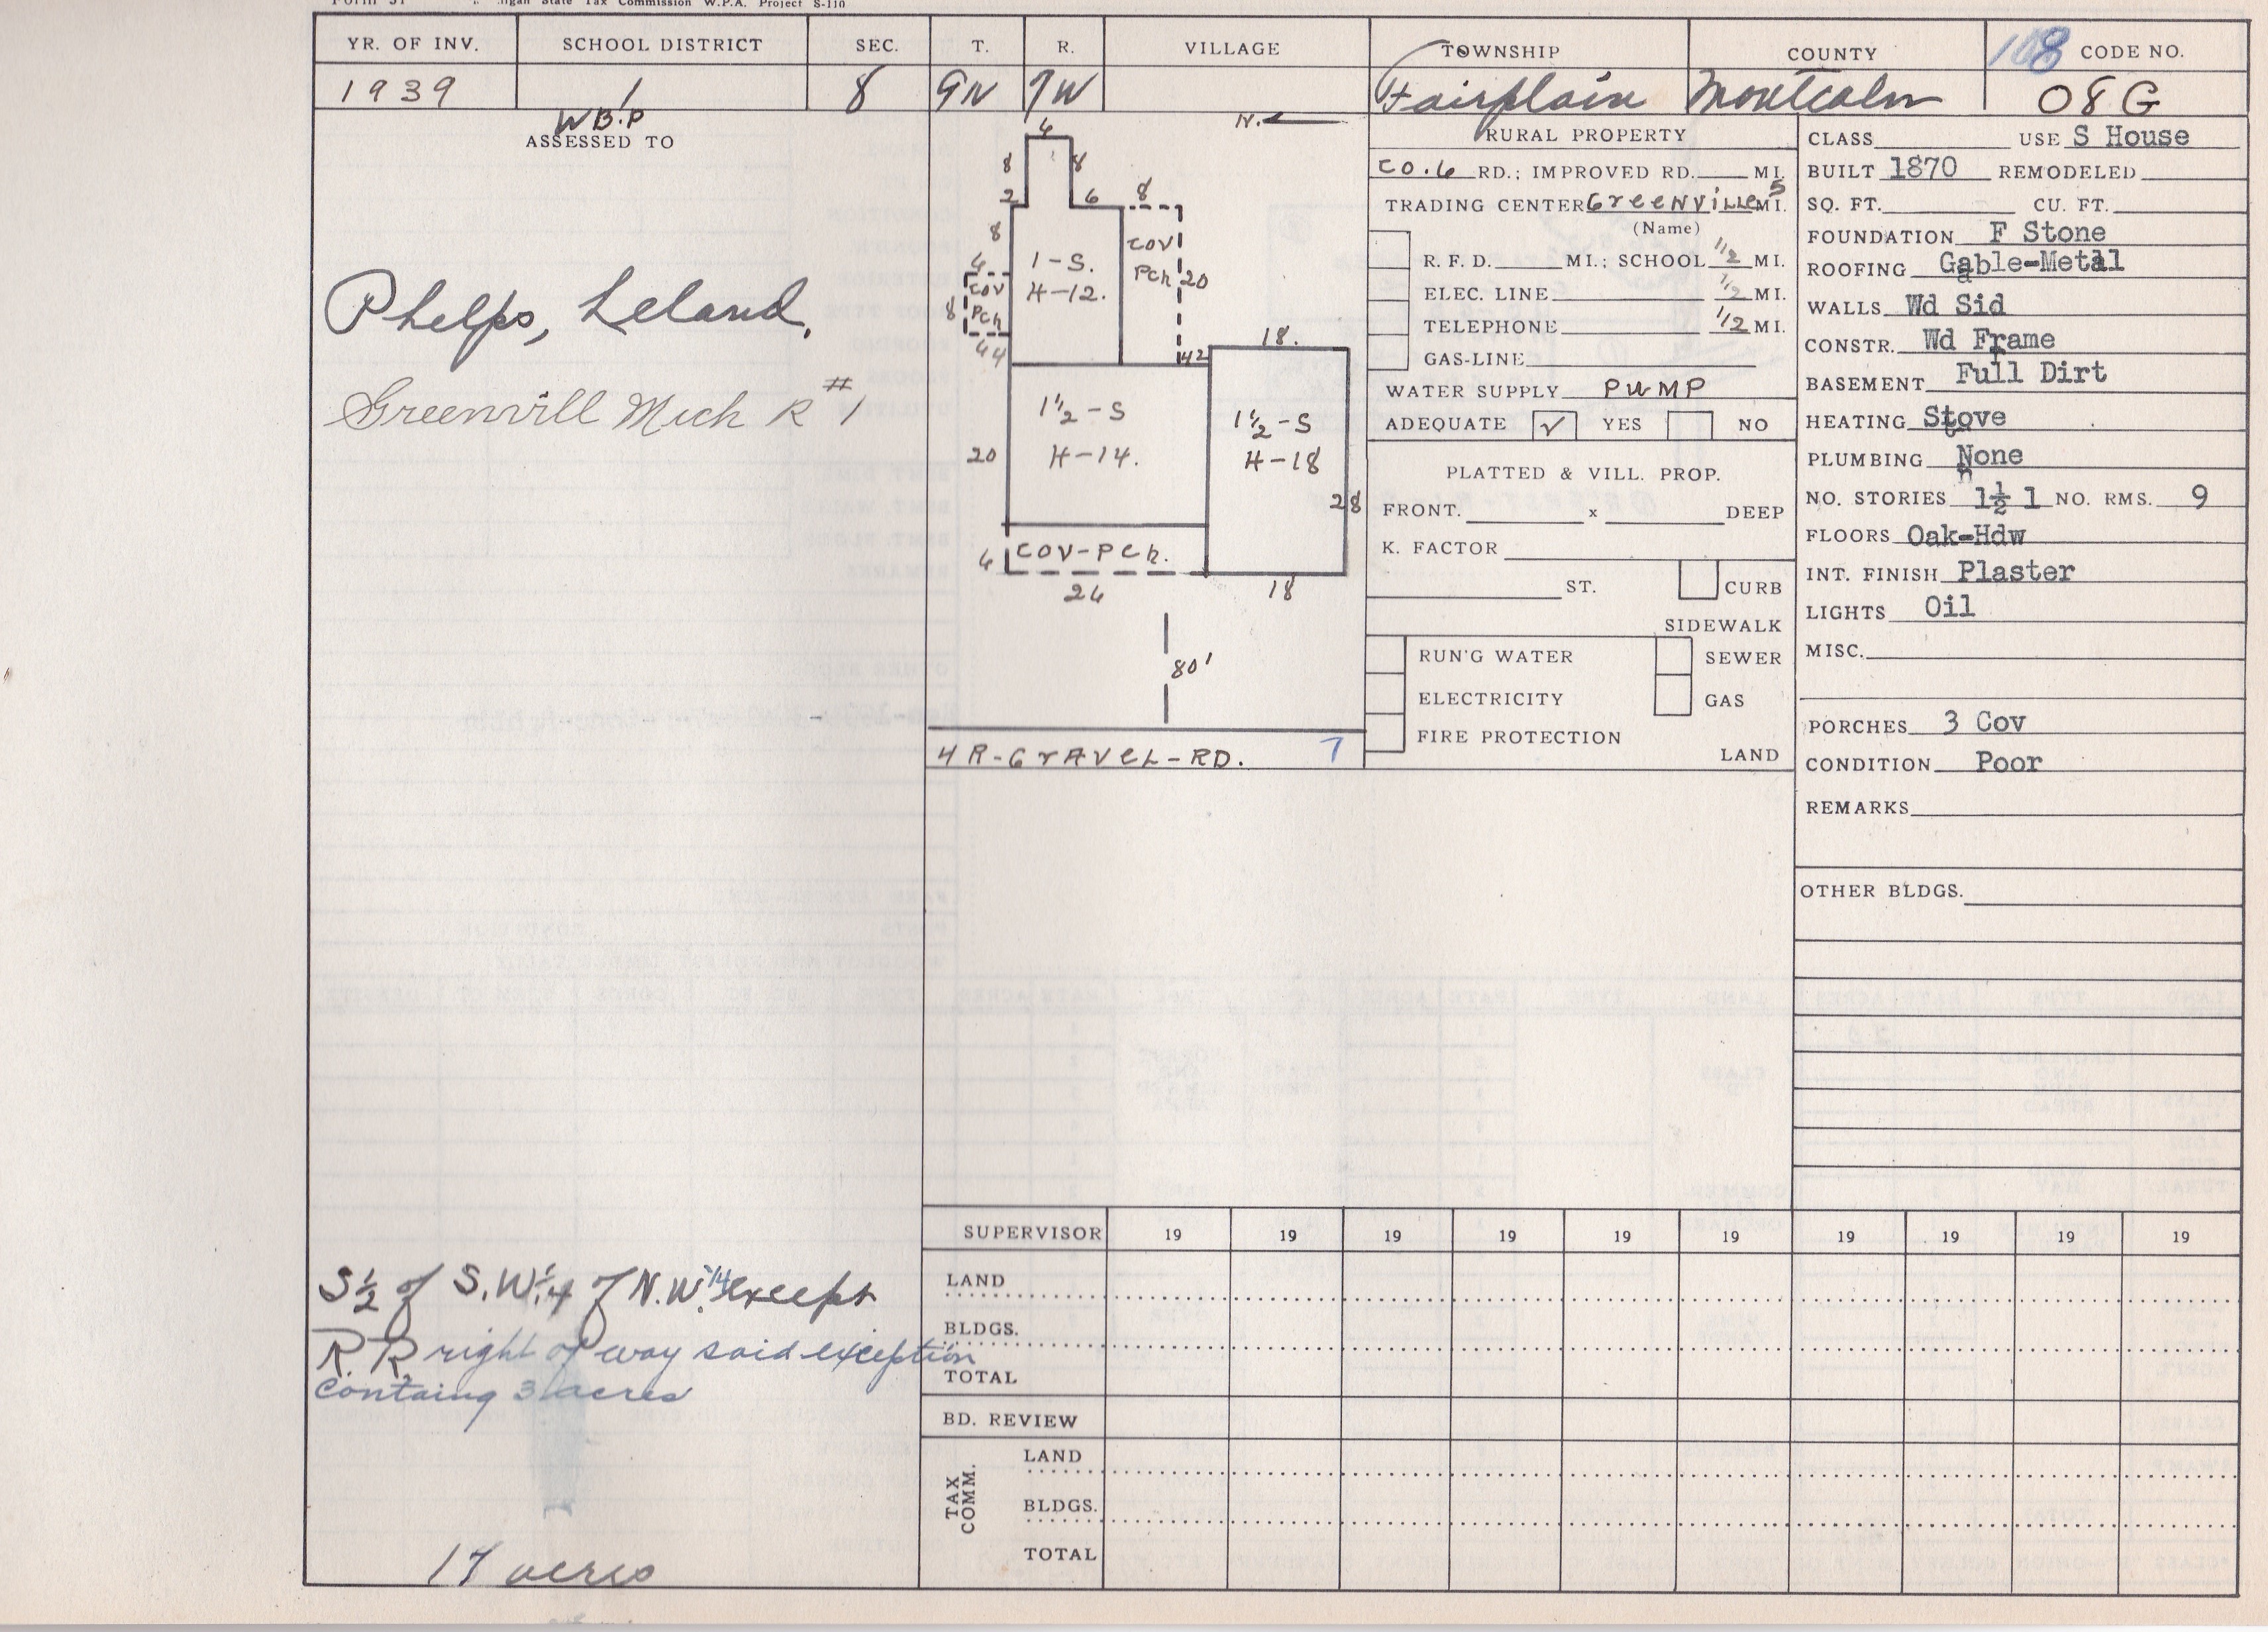 State Tax Commission W.P.A. Project S-110
YR. OF INV. SCHOOL DISTRICT SEC. T. R. VILLAGE TOWNSHIP COUNTY 108 CODE NO.
1939 1 8 9N 7W Fairplain Montcalm 08G
W.B.P
ASSESSED TO
Phelps, Leland.
Greenvill Mich R #1
S½ of S.W.¼ of N.W.¼ except
R.R. right of way said exception
containg 3 acres
17 acres
N.
6
8 8
2 6 8
8
1-S.
H-12.
COV
PCh
20
4
COV
PCh
8
4 4
42
18.
1½-S
H-14.
20
1½-S
H-18
28
4 COV-PCh.
24 18
80'
4 R-GrAVEL-RD. 7
RURAL PROPERTY
CO.6 RD.; IMPROVED RD. MI.
TRADING CENTER GreeNViLLe 5 MI.
(Name)
R.F.D. MI.; SCHOOL 1/2 MI.
ELEC. LINE 1/2 MI.
TELEPHONE 1/2 MI.
GAS-LINE
WATER SUPPLY PUMP
ADEQUATE √ YES NO
PLATTED & VILL. PROP.
FRONT. x DEEP
K. FACTOR
ST. CURB
SIDEWALK
RUN'G WATER SEWER
ELECTRICITY GAS
FIRE PROTECTION
LAND
CLASS USE S House
BUILT 1870 REMODELED
SQ. FT. CU. FT.
FOUNDATION F Stone
ROOFING Gable-Metal
WALLS Wd Sid
CONSTR. Wd Frame
BASEMENT Full Dirt
HEATING Stove
PLUMBING None
NO. STORIES 1½ 1 NO. RMS. 9
FLOORS Oak-Hdw
INT. FINISH Plaster
LIGHTS Oil
MISC.
PORCHES 3 Cov
CONDITION Poor
REMARKS
OTHER BLDGS.
SUPERVISOR 19 19 19 19 19 19 19 19 19 19
LAND
BLDGS.
TOTAL
BD. REVIEW
TAX COMM.
LAND
BLDGS.
TOTAL